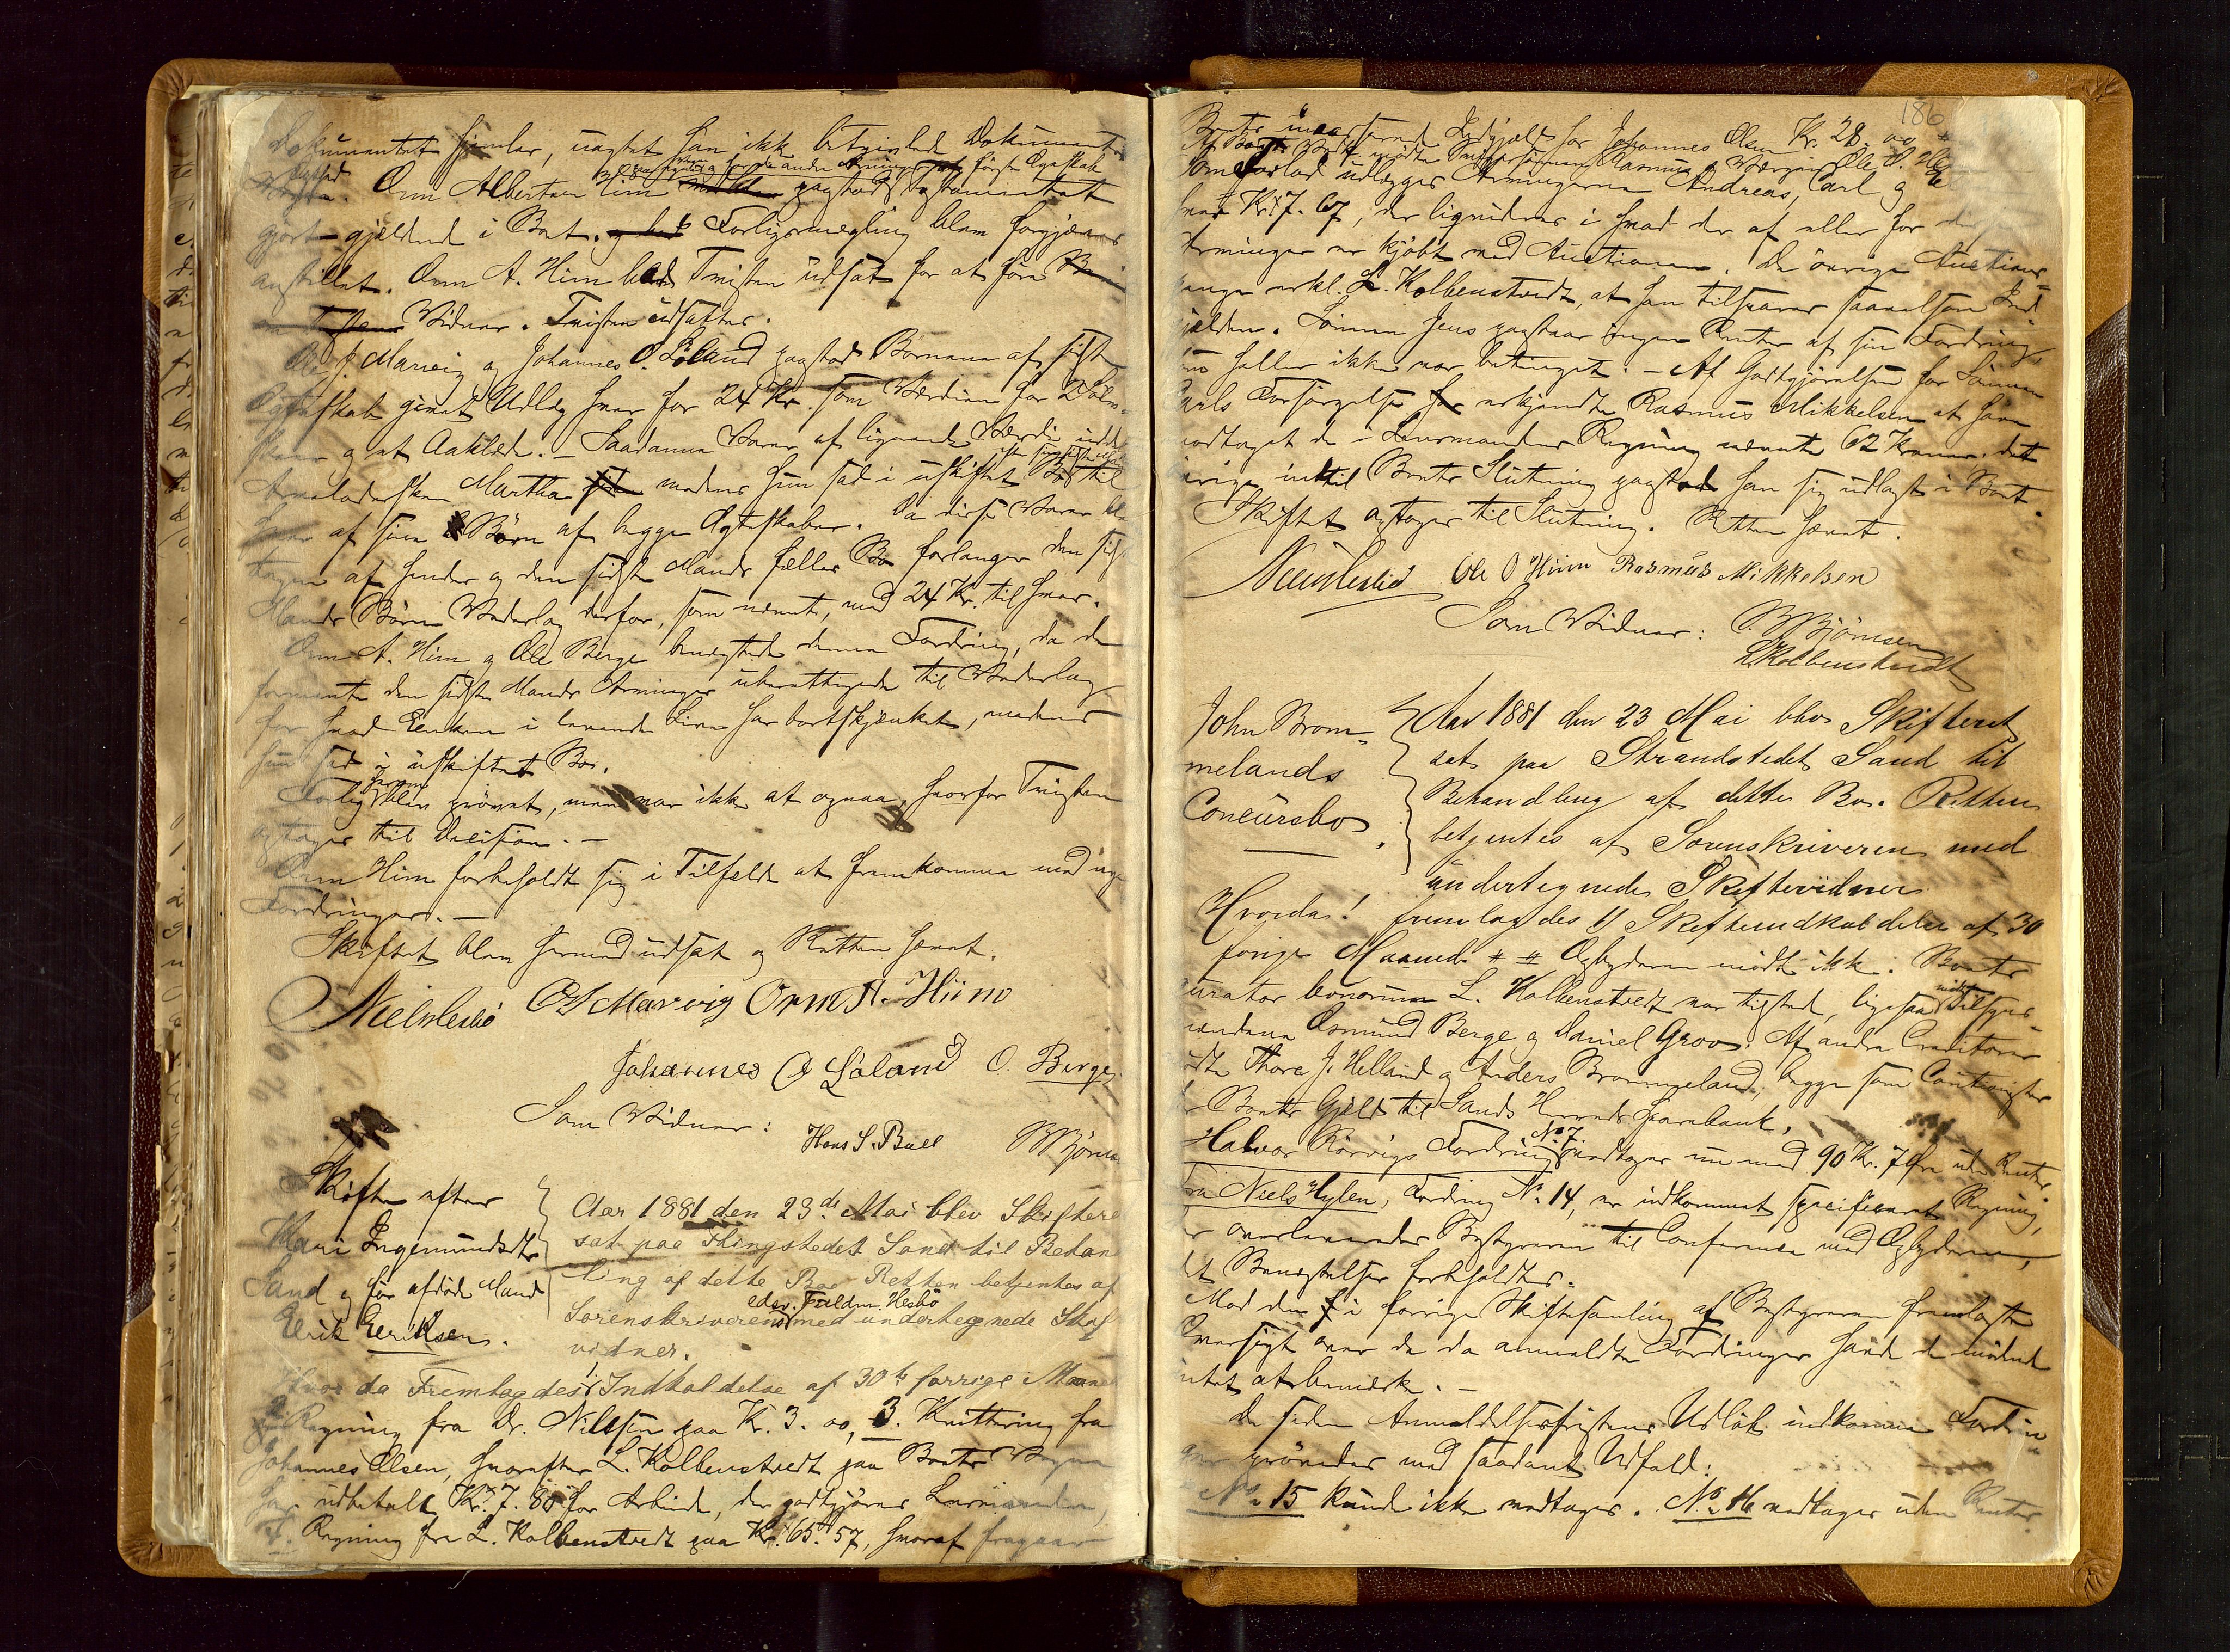 Dokumentet hjemler, uagtet han ikke betvivled Dokumentets
Ægthed. Orm Albertsen Him paastod Testamentet
gjort gjældende i Boet. Forligsmægling blev forgjæves
anstillet. Orm A. Him bad Tvisten udsat for at føre
Vidner. Tvisten udsattes.
Ole J. Marvig og Johannes O. Løland paastod Børnene af sidste
Ægteskab givet Udlæg hver for 24 Kr. som Værdien for 2
og et Aaklæde. – Saadanne Varer af lignende Værdi
Arveladersken Martha medens hun sad i uskiftet Bo til
hver af sine Børn af begge Ægteskaber. Da disse Varer
tagne af hendes og den sidste Mands fælles Bo forlanger den
Mands Børn Vederlag derfor, som nævnt, med 24 Kr. til hver.
Orm A. Him og Ole Berge benegtede denne Fordring, da de
formente den sidste Mands Arvinger uberettigede til Vederlag
for hvad Enken i levende Live har bortskjænket, medens
hun sad i uskiftet Bo.
Forlig blev prøvet, men var ikke at opnaa, hvorfor Tvisten
optages til Decision. –
Orm Him forbeholdt sig i Tilfælde at fremkomme med nye
Fordringer. –
Skiftet blev hermed udsat og Retten hævet.
OJ Marvig Orm A. Hiim
Johannes O Løland O. Berge
Som Vidner:
Hans S. Bull
Skifte efter
Kari Ingemundsdtr
Sand og før afdøde Mand
Erik Eeriksen.
Aar 1881 den 23de Mai blev Skiftere
sat paa Thingstedet Sand til Behan
ling af dette Boe Retten betjentes af
edsv. Fuldm. Hesbø
Sorenskriveren med undertegnede Skif
vidner.
Hvor da Fremlagdes 1/ Indkaldelse af 30te forrige Maane
Regning fra Dr. Nilssen paa Kr. 3. 00, 3. Kvittering fra
Johannes Olsen, hvorefter L. Kolbenstvedt paa Boets Vegne
har udbetalt Kr. 7. 80 for Arbeide, der godtgjøres Lensmanden,
4. Regning fra L. Kolbenstvedt paa Kr. 65. 57, hvoraf fragaar
186
Boets uaar Gjæld for Johannes Olsen Kr. 28. 00
udlægges Arvingerne Andreas, Carl og
Kr. 17. 67, der ligvideres i hvad der af eller for
Arvinger er kjøbt ved Auctionen. De øvrige Auctions-
penge erkl. L. Kolbenstvedt, at han tilsvarer saavelsom
gjælden. Sønnen Jens paastaar ingen Renter af sin Fordring
heller ikke var betinget. – Af Godtgjørelsen for Sønnen
Carls Forsørgelse erkjendte Rasmus Mikkelsen at have
modtaget de i Lensmandens Regning nævnte 62 Kroner. det
øvrige indtil Boets Slutning paastod han sig udlagt i Boet.
Skiftet optages til Slutning. Retten hævet.
Ole O Hiim Rasmus Mikkelsen
Som Vidner:
Bjørnsen
LKolbenstvedt
John Brom-
melands
Concursbo.
Aar 1881 den 23 Mai blev Skifteret
sat paa Strandstedet Sand til
Behandling af dette Bo. Retten
betjentes af Sorenskriveren med
undertegnede Skiftevidner
Hvorda! fremlagdes 1/ Skifteindkaldelse af 30
forrige Maaned. Opbyderen mødte ikke. Boets
curator bonorum L. Kolbenstvedt var tilstede, ligesaa mødte Tilsyns-
mændene Osmund Berge og Daniel Groov. Af andre Creditorer
mødte Thore J. Helland og Anders Brommeland, begge som Cautionister
for Boets Gjæld til Sands Herreds Sparebank.
Halvor Rørvigs Fordring No 7 modtages nu med 90 Kr. 7 Øre uden Renter.
Fra Niels Hylen, Fordring No. 14, er indkommet specificeret Regning,
der overleveredes Bestyreren til Conference med Opbyderen,
at Benegtelse forbeholdtes.
Mod den i forrige Skiftesamling af Bestyreren fremlagte
Oversigt over de da anmeldte Fordringer havde de mødende
intet at bemærke. –
De siden Anmeldelsesfristens Udløb indkomne Fordrin-
ger prøvedes med saadant Udfald:
No. 15 kunde ikke modtages. No. 16 modtages uden Renter.